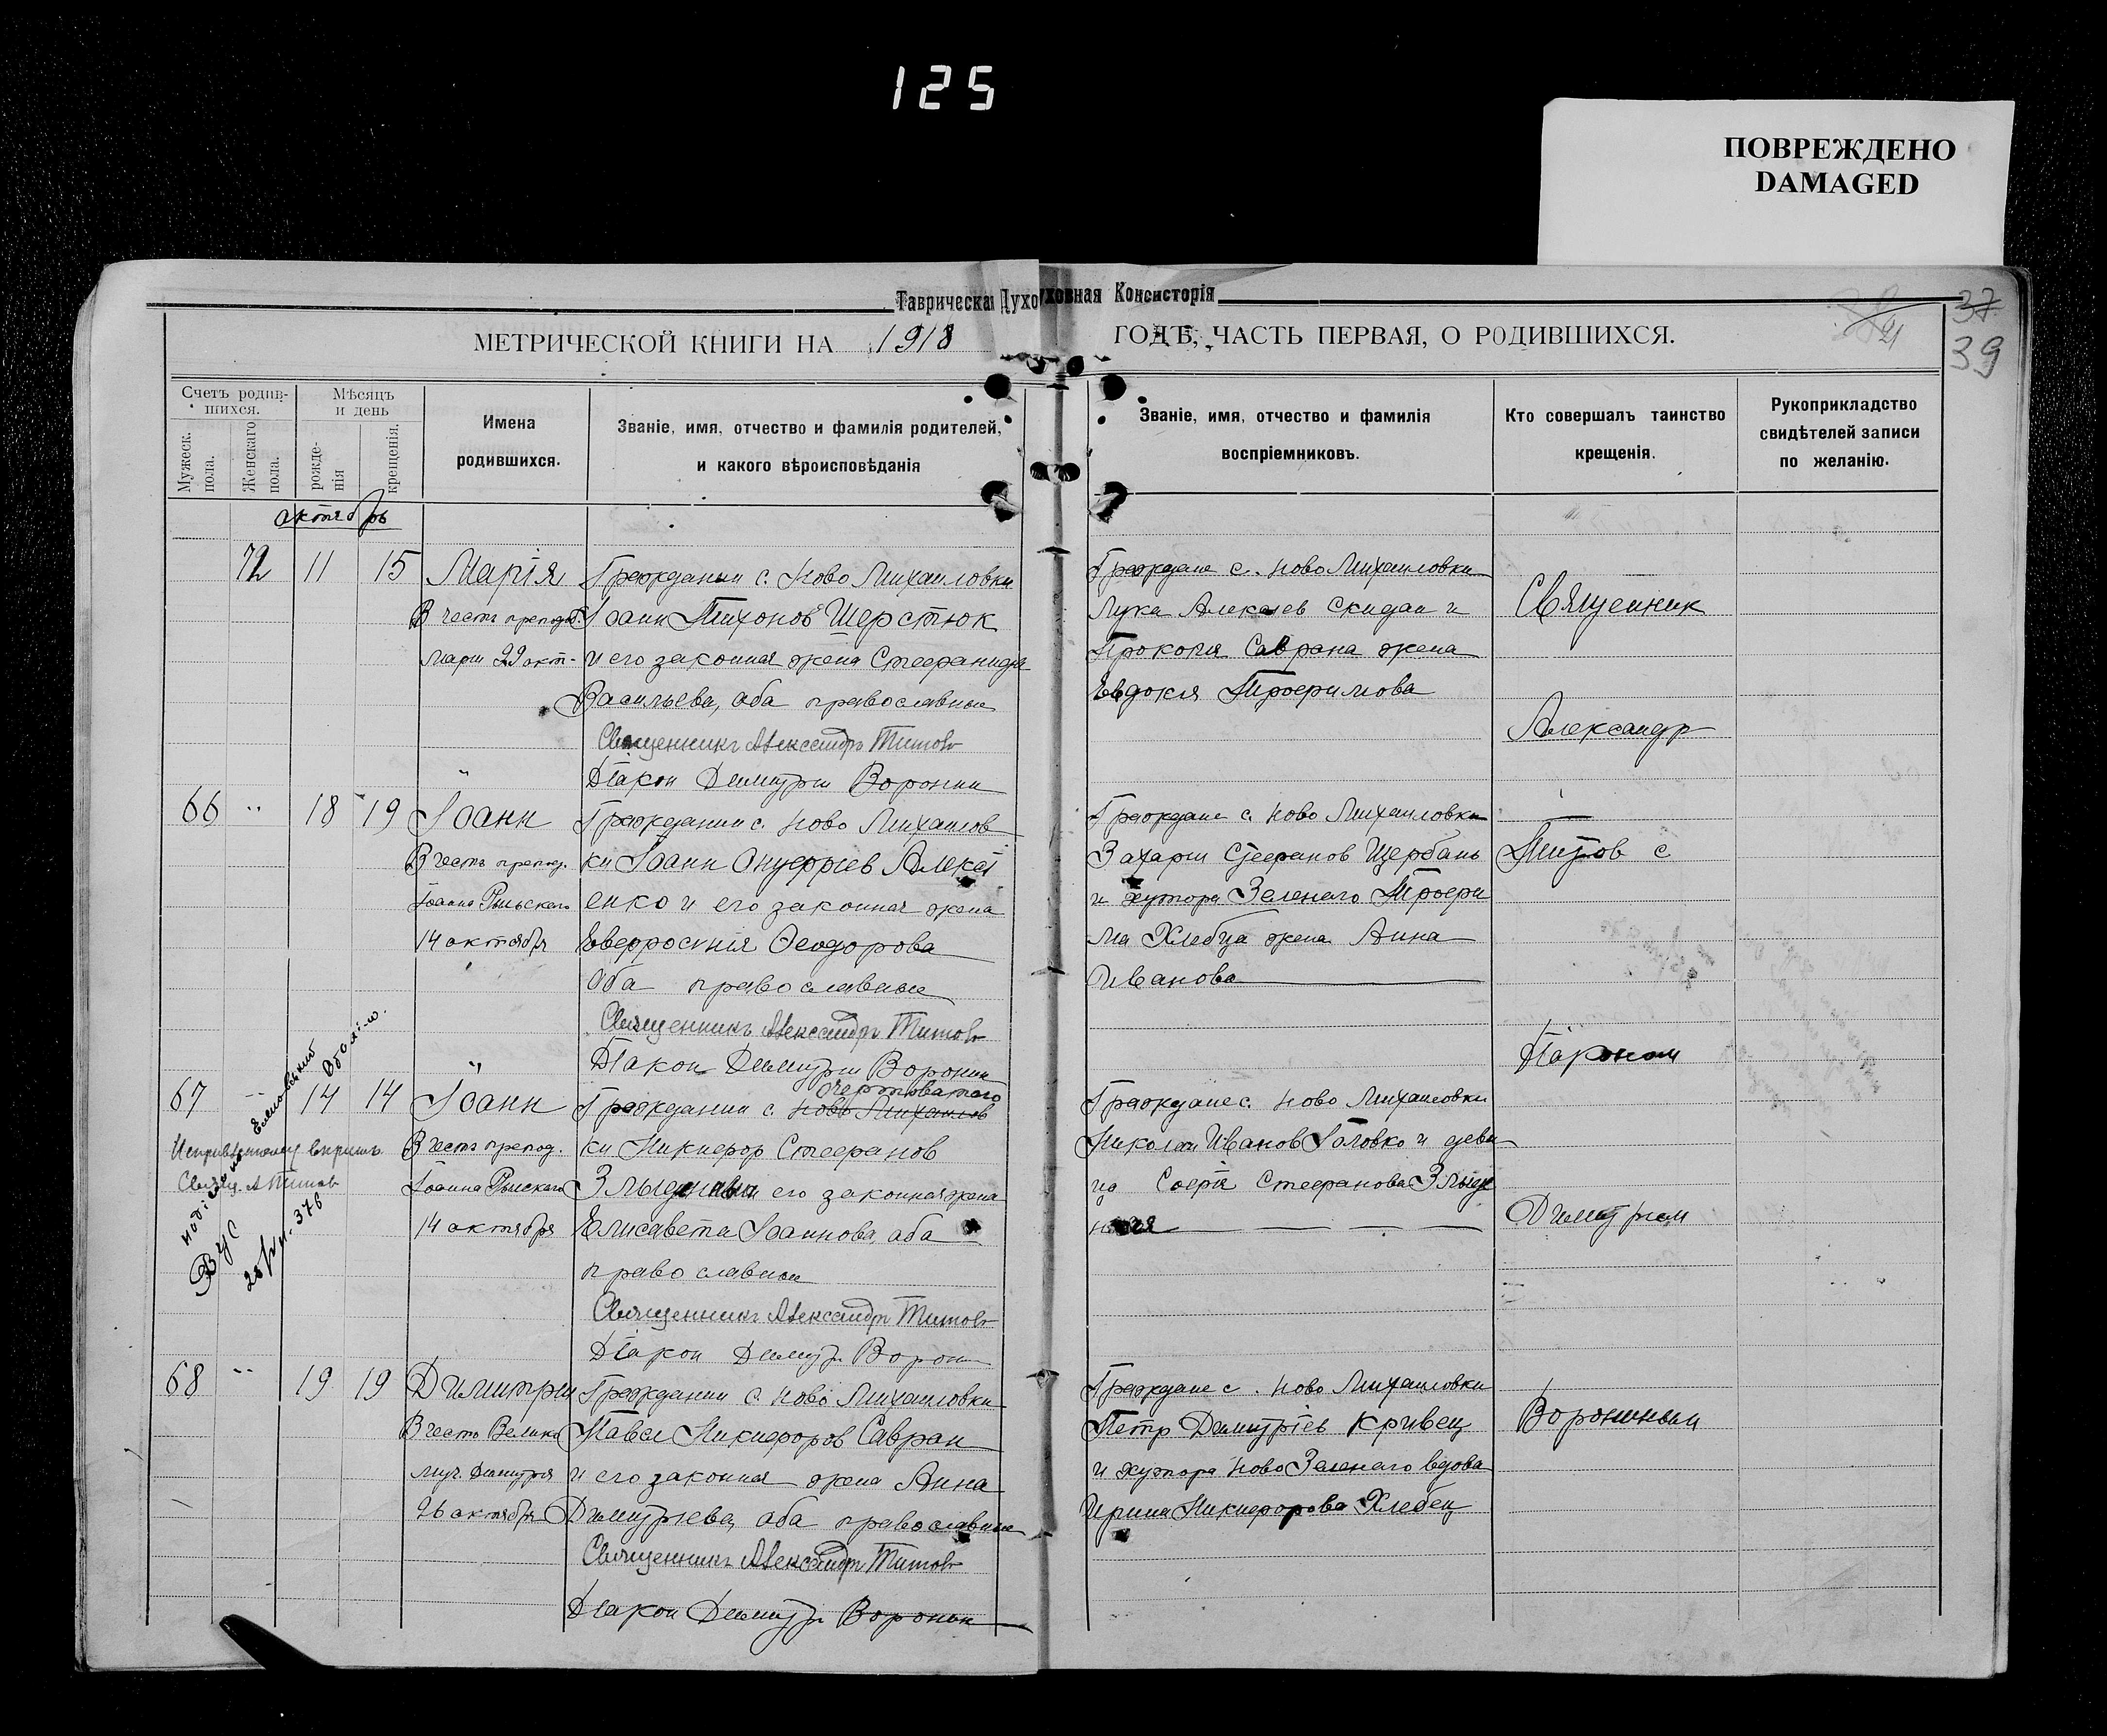 125
ПОВРЕЖДЕНО
DAMAGED
Таврическая Духовная Консисторія
МЕТРИЧЕСКОЙ КНИГИ НА 1918 ГОДЪ, ЧАСТЬ ПЕРВАЯ, О РОДИВШИХСЯ.
37
39
Счетъ родившихся.
Мужеск. пола.
Женскаго пола.
Мѣсяцъ и день
рожденія
крещенія.
Имена родившихся.
Званіе, имя, отчество и фамилія родителей,
и какого вѣроисповѣданія
Званіе, имя, отчество и фамилія
воспріемниковъ.
Кто совершалъ таинство
крещенія.
Рукоприкладство
свидѣтелей записи
по желанію.
октябрь
72 11 15 Марія
В честь препод.
Маріи 29 окт.
Гражданин с. Ново Михаиловки
Іоанн Тихонов Шерстюк
и его законная жена Стефанида
Васильева, оба православные
Священникъ Александръ Титовъ
Діакон Димитрий Воронин
Граждане с. Ново Михаиловки
Лука Алексеев Скидан и
Прокопия Саврана жена
Евдокия Трофимова
66 18 19 Іоанн
В честь препод.
Іоанна Рыльскаго
14 октября
Гражданин с. Ново Михаилов
ки Іоанн Онуфриев Алексі
енко и его законная жена
Евфросинія Феодорова
Оба православные
Священникъ Александръ Титовъ
Діакон Димитрий Воронин
Граждане с. Ново Михаиловки
Захарий Стефанов Щербань
и хутора Зеленаго Трофи
ма Хлебца жена Анна
Иванова
67 14 14 Іоанн
В честь препод.
Іоанна Рыльскаго
14 октября
Гражданин с. Ново Михаилов
ки Никифор Стефанов
его законная жена
Елисавета Іоаннова, оба
православные
Священникъ Александръ Титовъ
Діакон Димитр. Ворон
Свящ. А Титов
Граждане с. Ново Михаиловки
Николай Иванов Головко и деви
ца Софія Стефанова
68 19 19 Димитрий
В честь Велико
муч. Димитрия
26 октября
Гражданин с. Ново Михаиловки
Павел Никифоров Савран
и его законная жена Анна
Димитриева, оба православные
Священникъ Александръ Титовъ
Діакон Димитр. Воронин
Граждане с. Ново Михаиловки
Петр Димитріев Кривец
и хутора Ново Зеленаго вдова
Ирина Никифорова Хлебец
Священник
Александр
Титов с
Діаконом
Димитрием
Ворониным